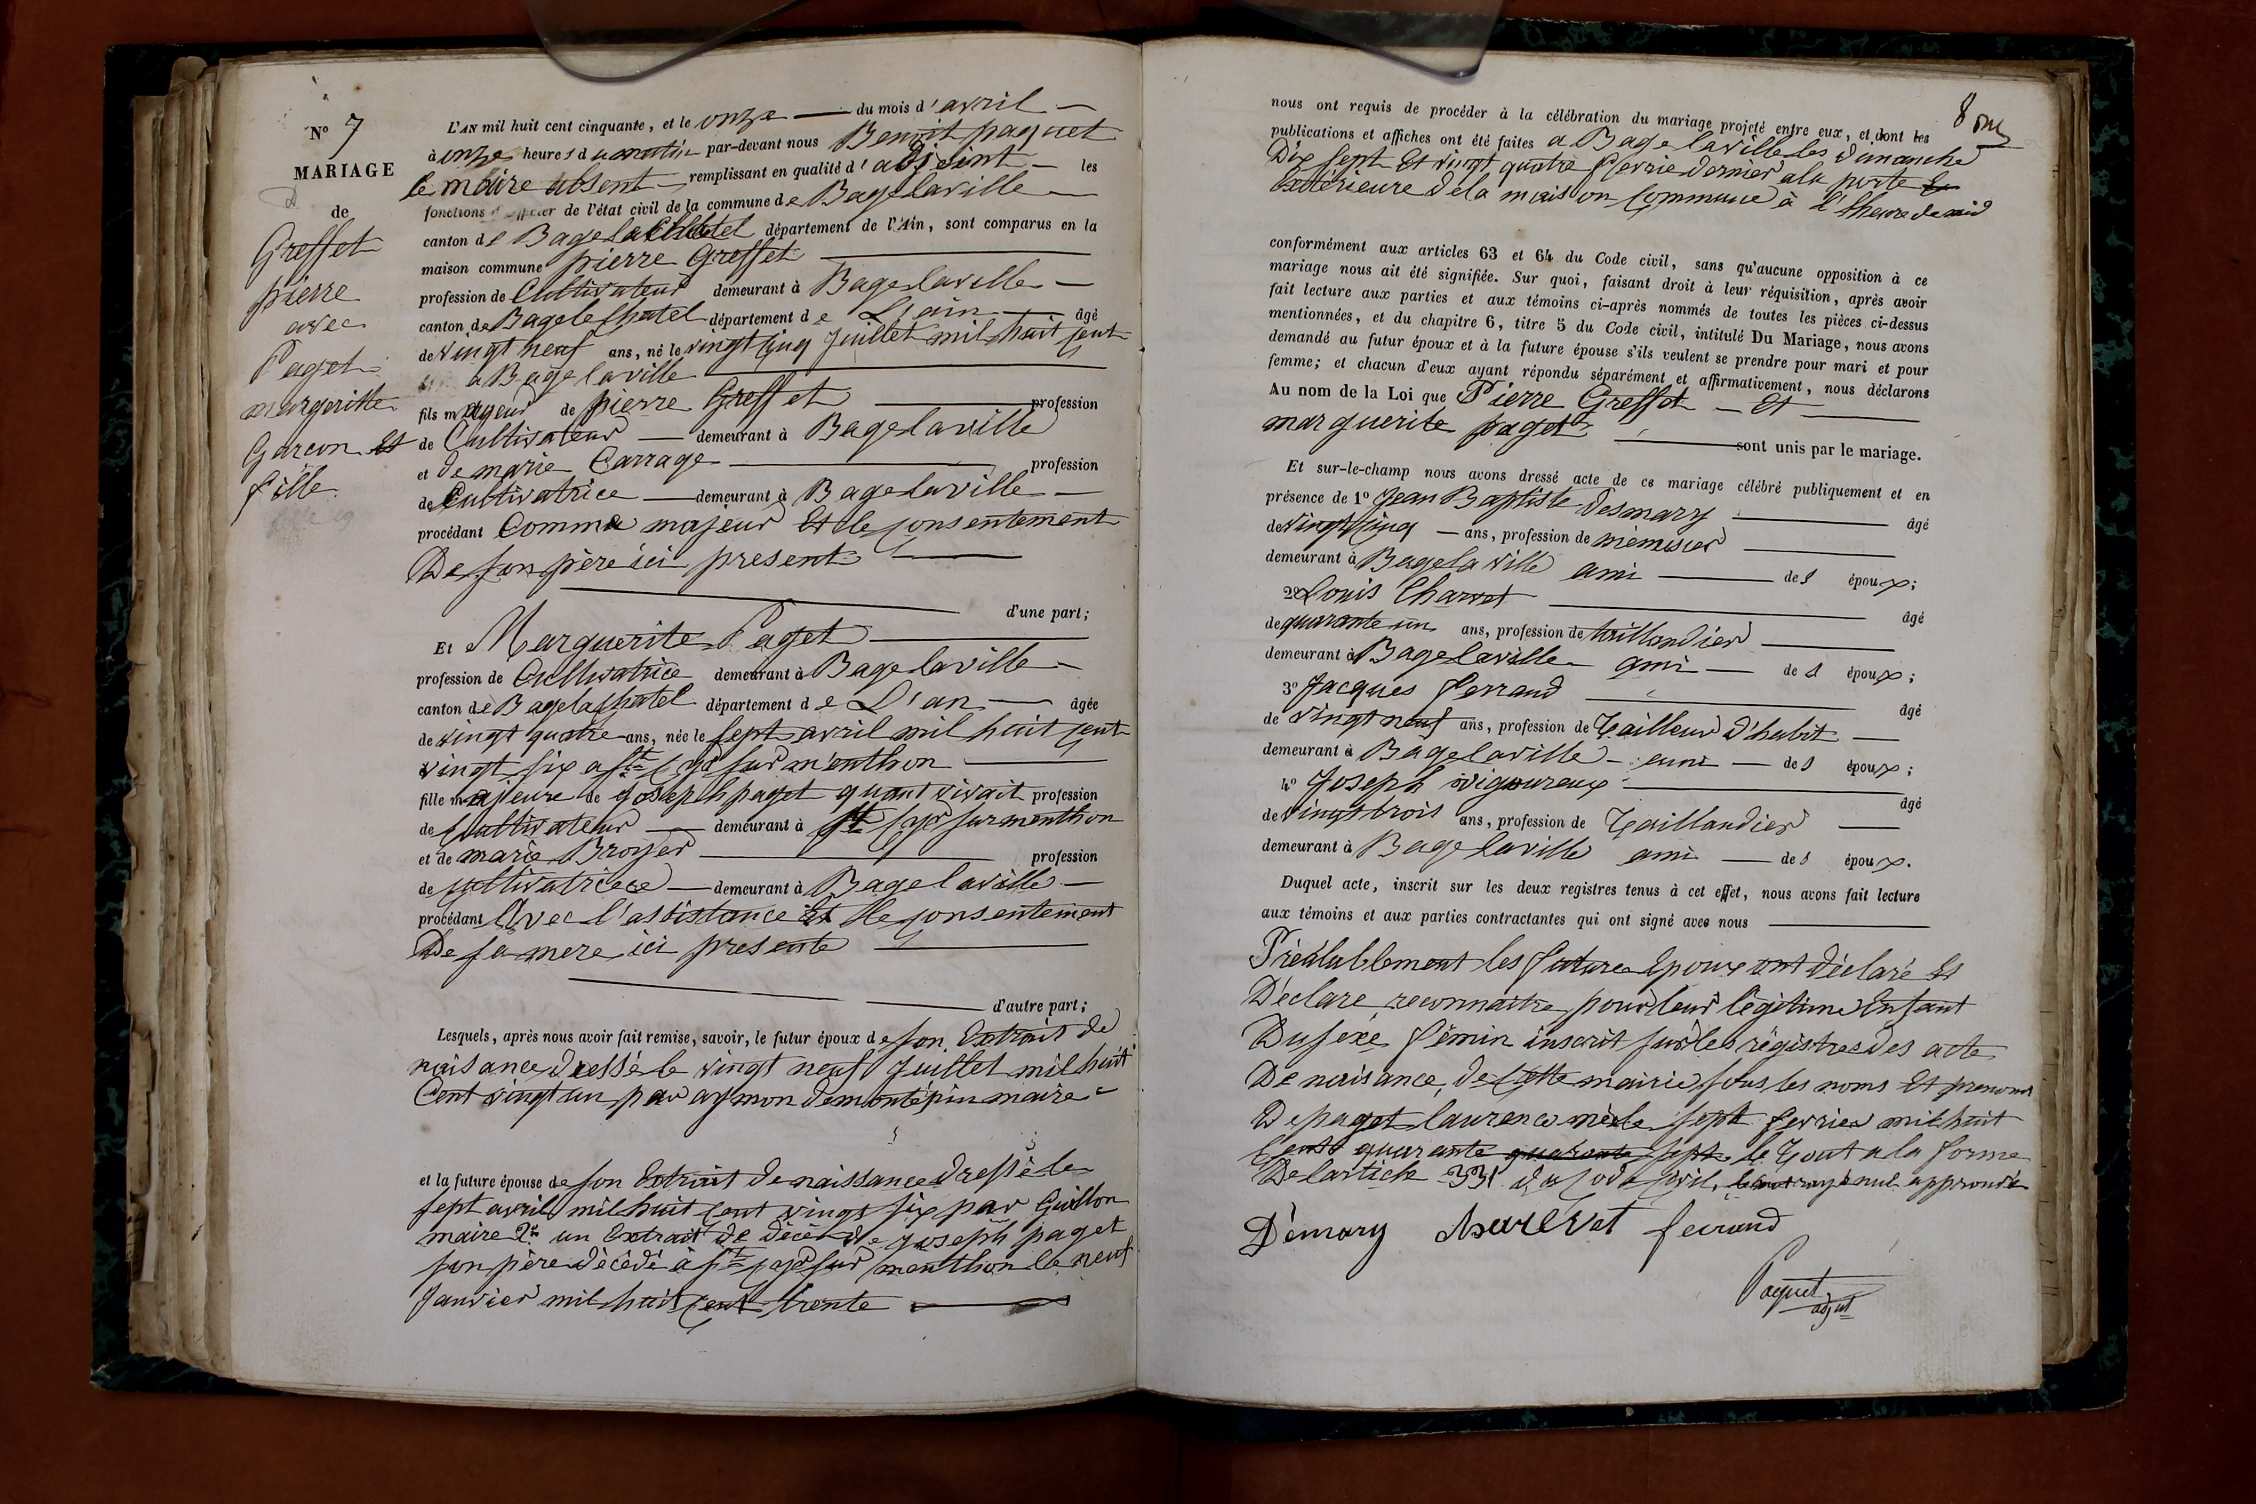 N° 7
MARIAGE
de
Greffet
pierre
avec
Paget
margeritte
Garcon et
fille
L'AN mil huit cent cinquante, et le onze du mois d'avril
à onze heures du matin par-devant nous Benoit paquet
le maire absent remplissant en qualité d'adjoint les
fonctions d'officier de l'état civil de la commune de Bagelaville
canton de Bage le Chatel département de l'Ain, sont comparus en la
maison commune pierre Greffet
profession de Cultivateur demeurant à Bagelaville
canton de Bage le Chatel département de L'ain âgé
de vingt neuf ans, né le vingt cinq Juillet mil huit cent
à Bagelaville
fils majeur de pierre Greffet profession
de Cultivateur demeurant à Bagelaville
et de marie Carrage profession
de Cultivatrice demeurant à Bagelaville
procédant Comme majeur Et le consentement
De son père ici present
d'une part;
Et Marguerite Paget
profession de Cultivatrice demeurant à Bagelaville
canton de Bagelachatel département de L'an âgée
de vingt quatre ans, née le sept avril mil huit cent
vingt six a St Cyr sur menthon
fille majeure de Joseph paget quant vivait profession
de Cultivateur demeurant à St Cyr sur menthon
et de marie Broyer profession
de cultivatricece demeurant à Bagelaville
procédant Avec l'assistance Et le consentement
De sa mere ici presente
d'autre part;
Lesquels, après nous avoir fait remise, savoir, le futur époux de son Extrait de
naisance dressé le vingt neuf Juillet mil huit
Cent vingt un par aymon demontépin maire
et la future épouse de son Extrait de naissance dressé le
sept avril mil huit cent vingt six par Guillon
maire 2° un Extrait de décé de Joseph paget
son père décédé à St Cyr sur menthon le neuf
Janvier mil huit cent trente
8
nous ont requis de procéder à la célébration du mariage projeté entre eux, et dont les
publications et affiches ont été faites a Bagelaville les dimanche
Dix sept Et vingt quatre fevrie dernier a la porte
Extérieure de la maison commune à l'heure de midi
conformément aux articles 63 et 64 du Code civil, sans qu'aucune opposition à ce
mariage nous ait été signifiée. Sur quoi, faisant droit à leur réquisition, après avoir
fait lecture aux parties et aux témoins ci-après nommés de toutes les pièces ci-dessus
mentionnées, et du chapitre 6, titre 5 du Code civil, intitulé Du Mariage, nous avons
demandé au futur époux et à la future épouse s'ils veulent se prendre pour mari et pour
femme; et chacun d'eux ayant répondu séparément et affirmativement, nous déclarons
Au nom de la Loi que Pierre Greffet Et
marguerite paget sont unis par le mariage.
Et sur-le-champ nous avons dressé acte de ce mariage célébré publiquement et en
présence de 1° Jean Baptiste Desmary âgé
de vingt cinq ans, profession de menusier
demeurant à Bagelaville ami des époux;
2° Louis Charvet âgé
de quarante un ans, profession de taillandier
demeurant à Bagelaville ami des époux;
3° Jacques ferrand âgé
de vingt neuf ans, profession de Tailleur d'habit
demeurant à Bagelaville ami des époux;
4° Joseph vigoureux âgé
de vingt trois ans, profession de Taillandier
demeurant à Bagelaville ami des époux.
Duquel acte, inscrit sur les deux registres tenus à cet effet, nous avons fait lecture
aux témoins et aux parties contractantes qui ont signé avec nous
Préalablement les future Epoux ont déclaré Et
Déclare reconnaitre pour leur légitime Enfant
Du sexe fémin inscrit sur les régistre des acte
De naisance, de Cette mairie sous les noms Et prenoms
De paget laurence née le sept fevrier mil huit
Cent quarante quarante sept. le tout a la forme
De lartick 331 du Code Civil. le mot rayé nul approuvé
Démary Charvet ferrand
Paquet
adjoint